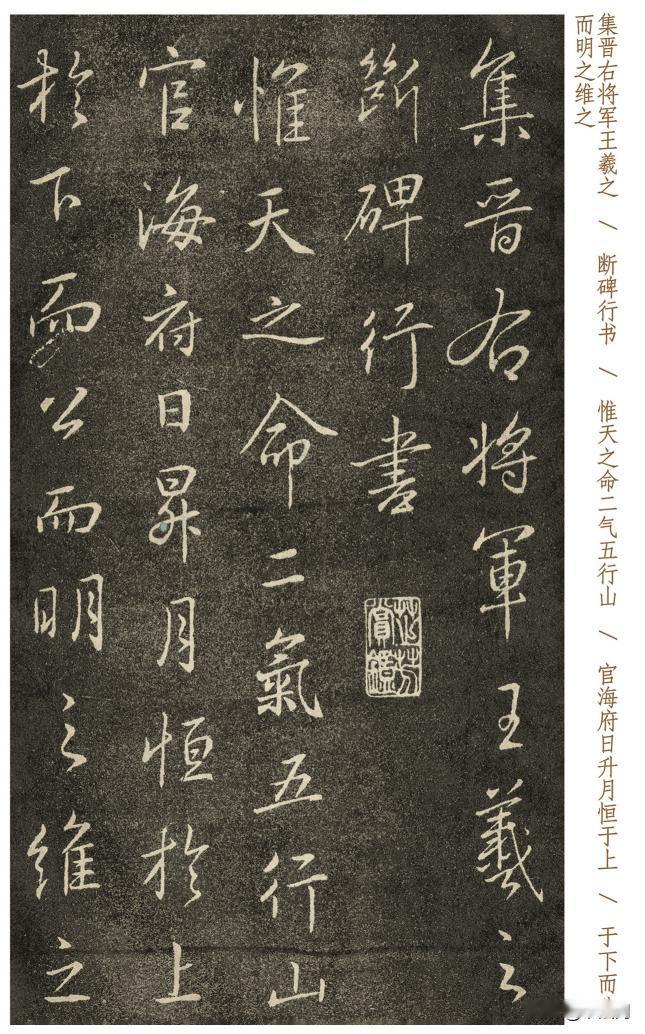 集晋右将军王羲之 \ 断碑行书 \ 惟天之命二气五行山 \ 官海府日升月恒于上 \ 于下而
而明之维之
集晋右将軍王羲之
断碑行書
惟天之命二氣五行山
官海府日昇月恒於上
於下而公而明之維之